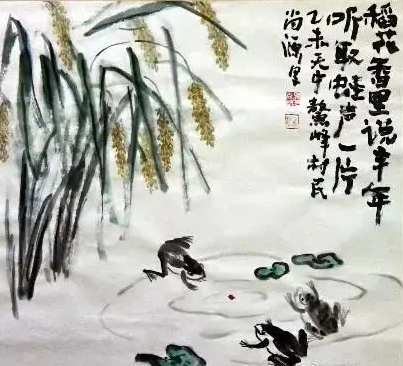 稻花香里说丰年
听取蛙声一片
乙未天中鳌峰村民
尚